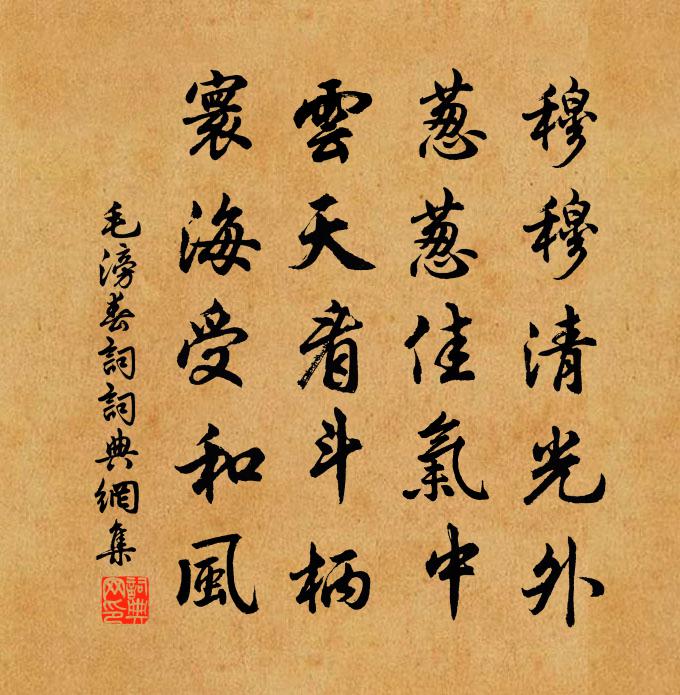 穆穆清光外
葱葱佳氣中
雲天看斗柄
寰海受和風
毛滂春詞詞典網集
詞典網印